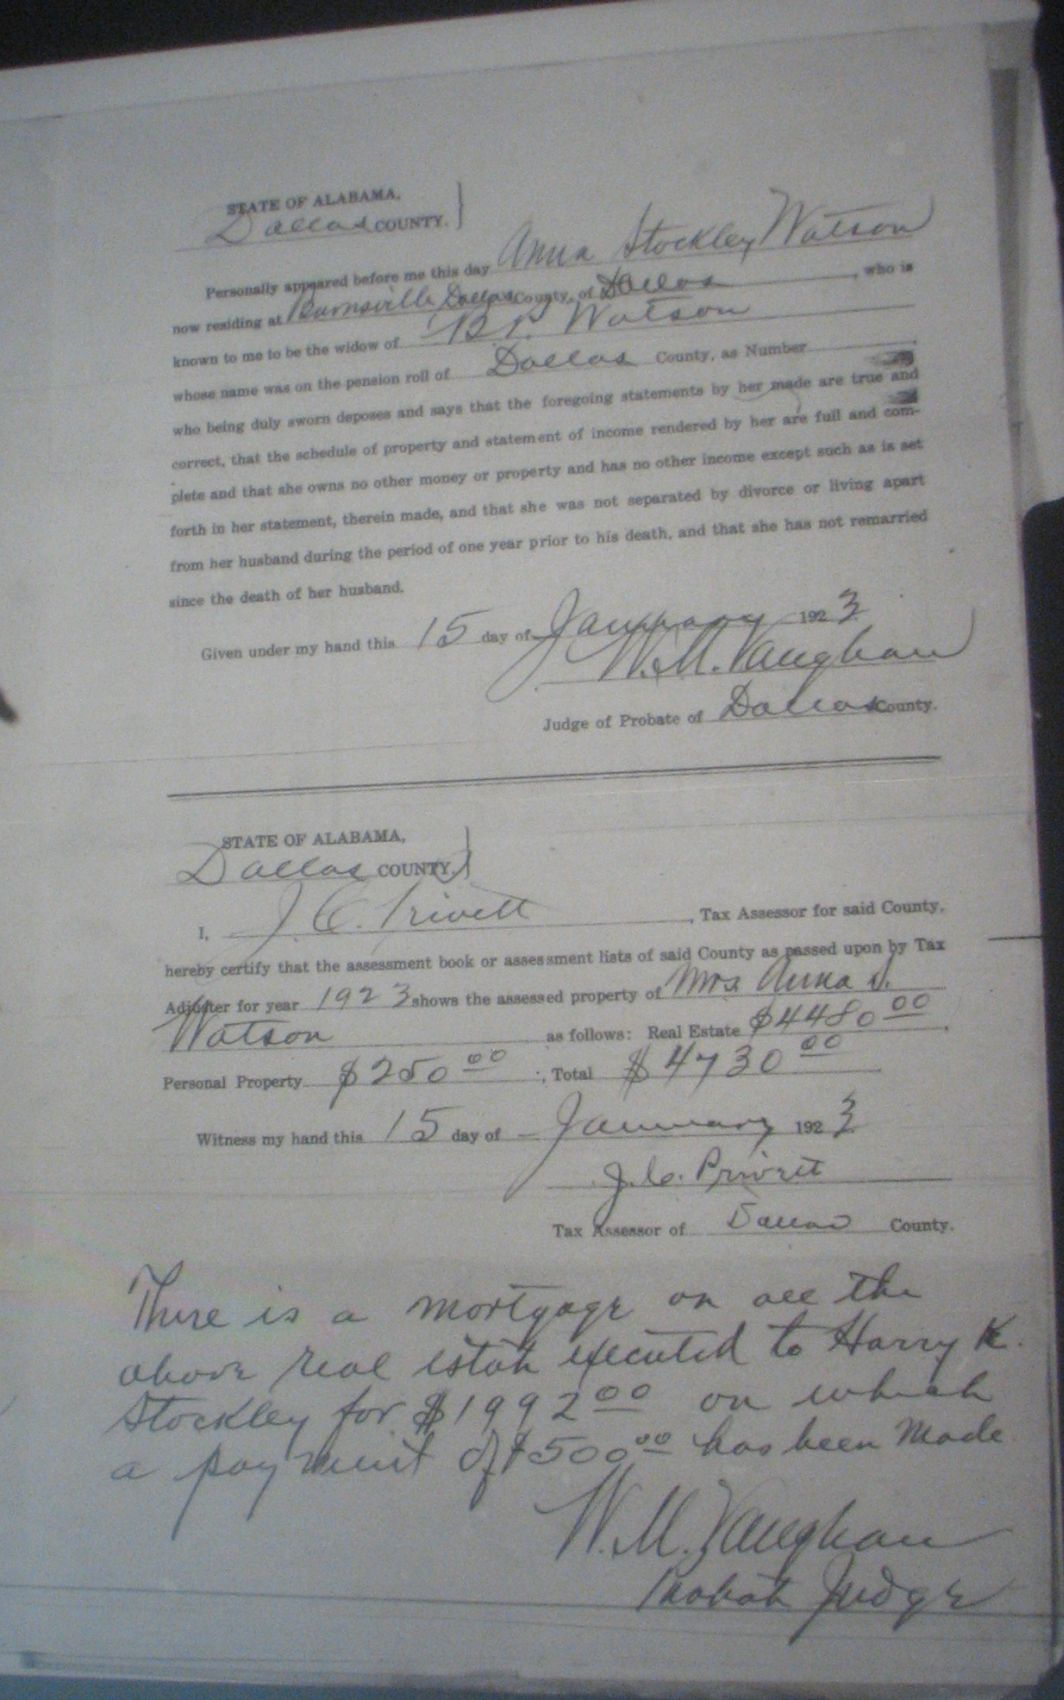 STATE OF ALABAMA,
Dallas COUNTY.
Personally appeared before me this day Anna Stockley Watson
now residing at Burnsville Dallas County, of Dallas, who is
known to me to be the widow of B. P. Watson
whose name was on the pension roll of Dallas County, as Number
who being duly sworn deposes and says that the foregoing statements by her made are true and
correct, that the schedule of property and statement of income rendered by her are full and com-
plete and that she owns no other money or property and has no other income except such as is set
forth in her statement, therein made, and that she was not separated by divorce or living apart
from her husband during the period of one year prior to his death, and that she has not remarried
since the death of her husband.
Given under my hand this 15 day of January 1923
W. M. Vaughan
Judge of Probate of Dallas County.
STATE OF ALABAMA,
Dallas COUNTY.
I, J. C. Privett, Tax Assessor for said County,
hereby certify that the assessment book or assessment lists of said County as passed upon by Tax
Adjuster for year 1923 shows the assessed property of Mrs Anna S.
Watson as follows: Real Estate $4480 00
Personal Property $250 00; Total $4730 00
Witness my hand this 15 day of January 1923
J. C. Privett
Tax Assessor of Dallas County.
There is a mortgage on all the
above real estate executed to Harry K.
Stockley for $1992 00 on which
a payment of $500 00 has been made
W. M. Vaughan
Probate Judge